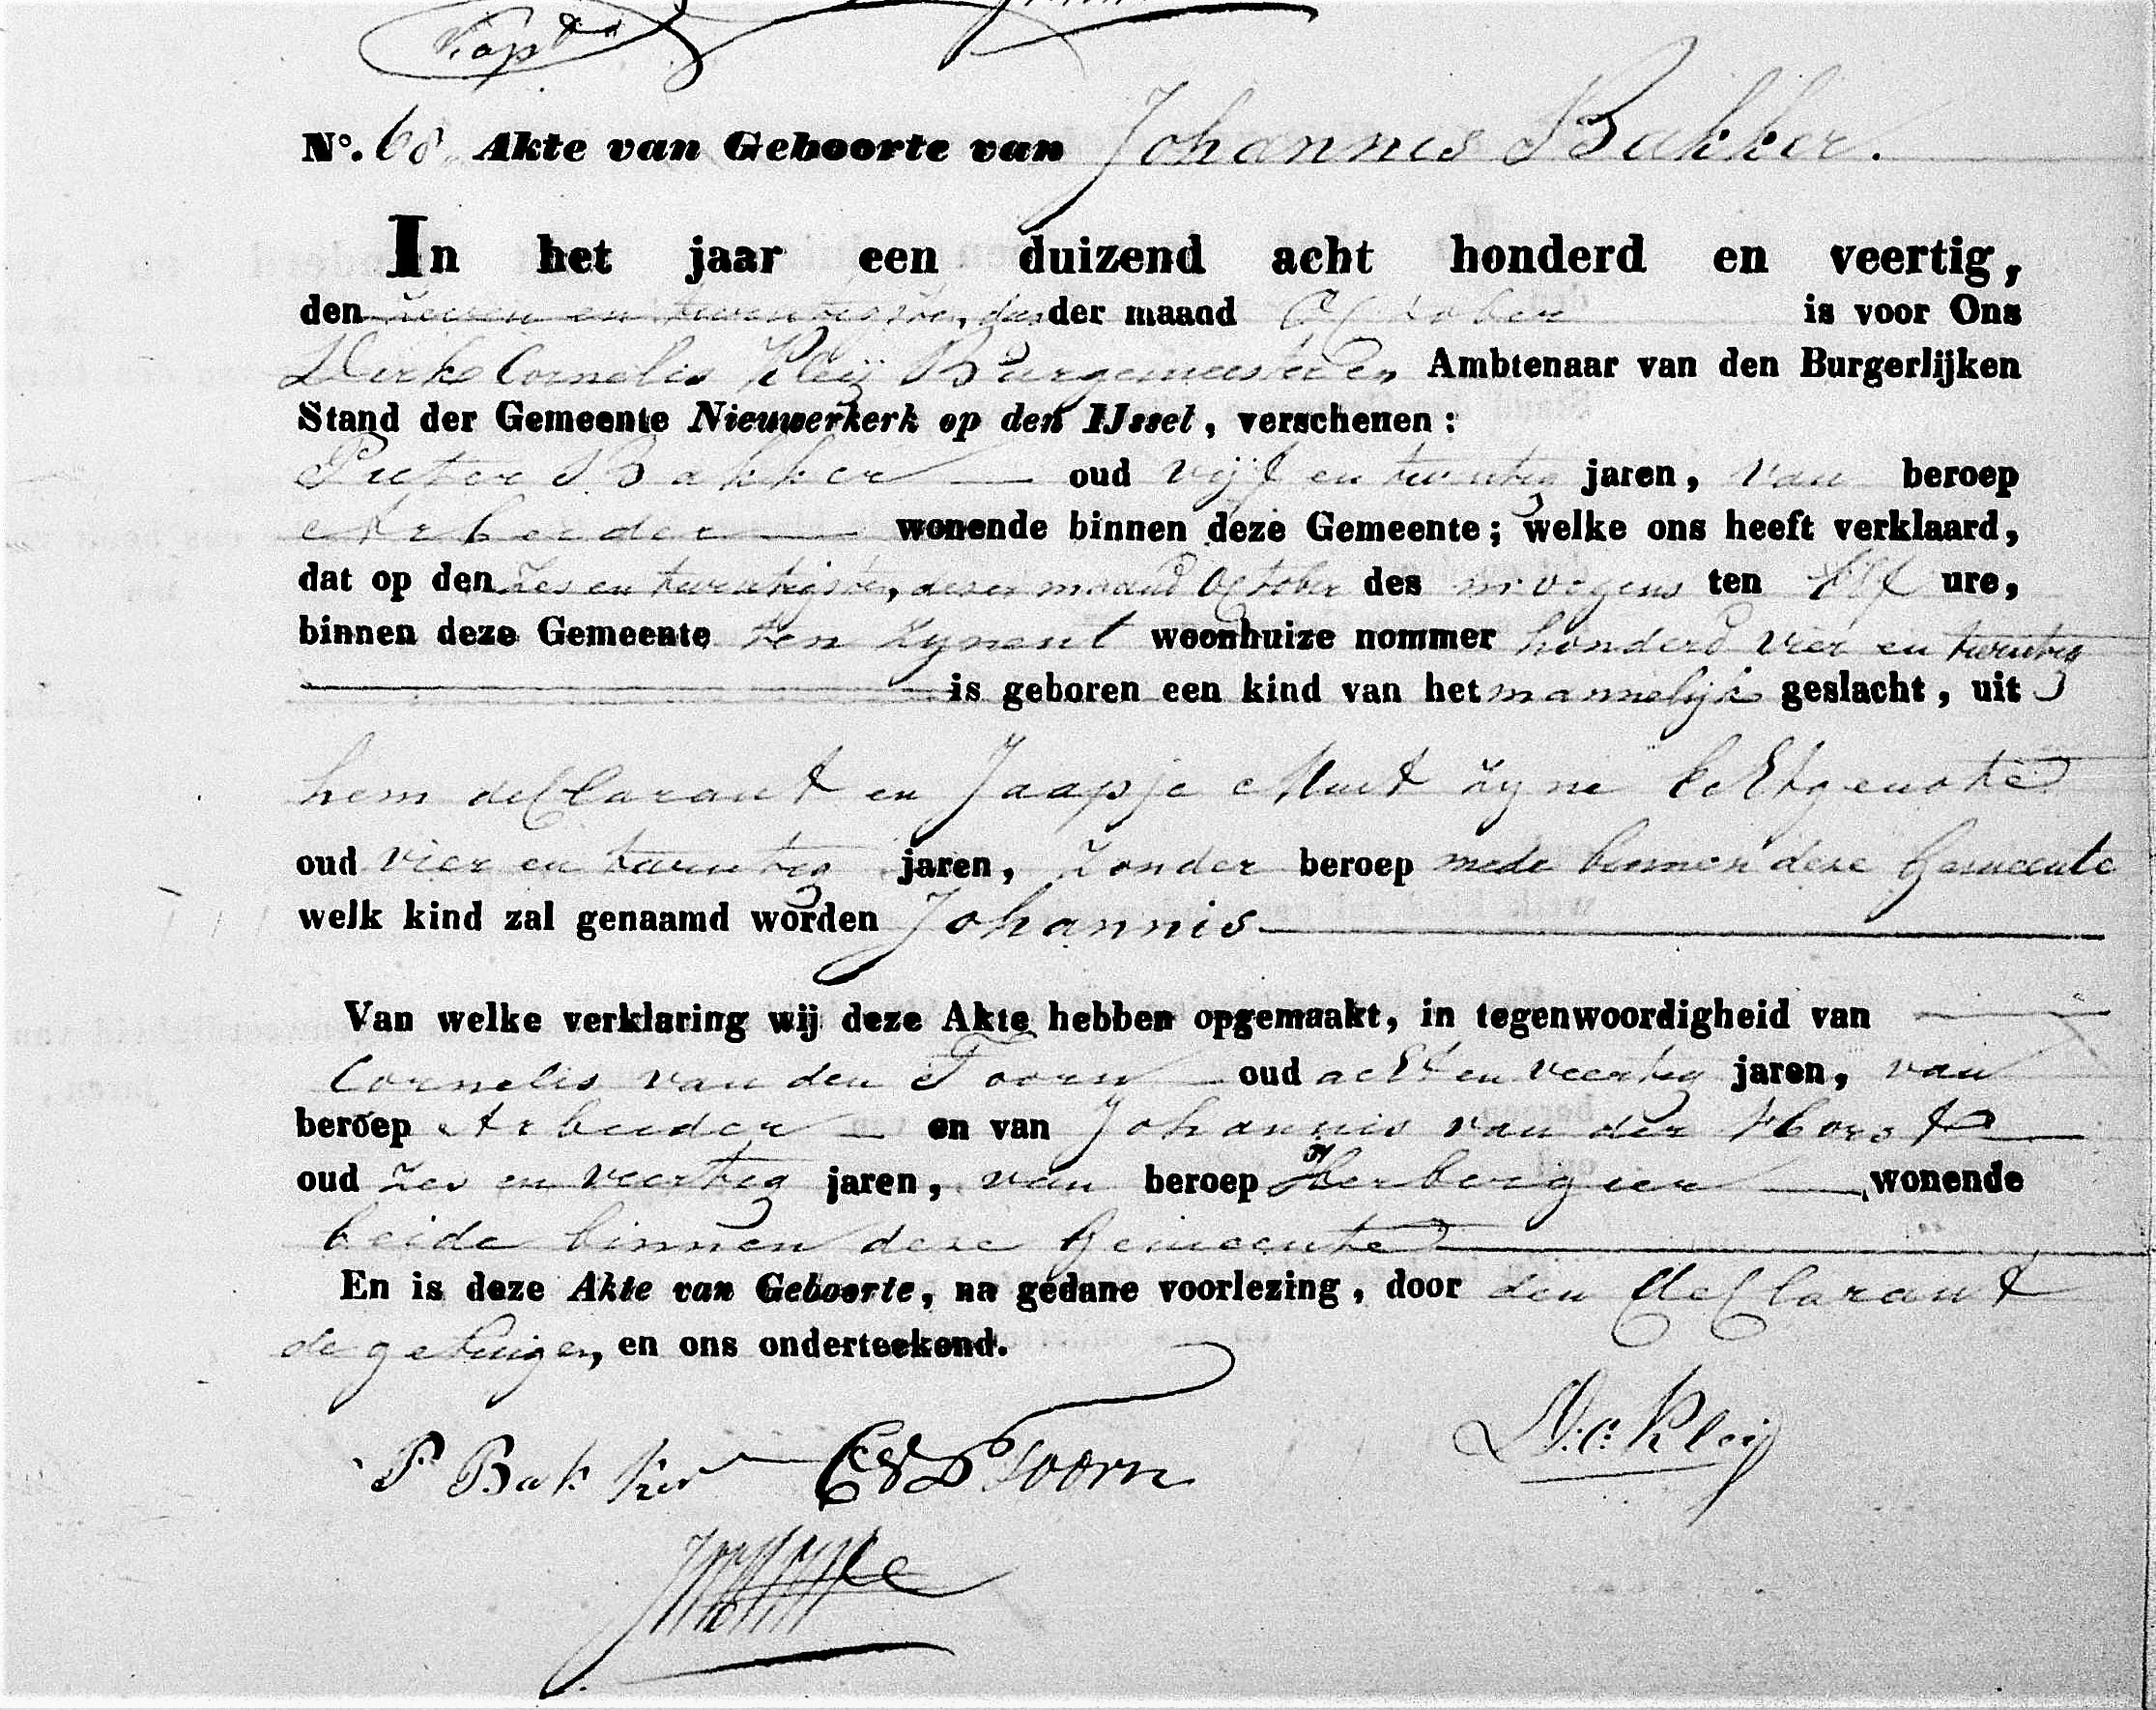 No. 68. Akte van Geboorte van Johannis Bakker.
In het jaar een duizend acht honderd en veertig,
den zeven en twintigsten, der maand October is voor Ons
Dirk Cornelis Kleij Burgemeester en Ambtenaar van den Burgerlijken
Stand der Gemeente Nieuwerkerk op den IJssel, verschenen:
Pieter Bakker oud vijf en twintig jaren, van beroep
Arbeider wonende binnen deze Gemeente; welke ons heeft verklaard,
dat op den zes en twintigsten, dezer maand October des morgens ten elf ure,
binnen deze Gemeente ten zynent woonhuize nommer honderd vier en twintig
is geboren een kind van het mannelijk geslacht, uit
hem declarant en Jaapje Muit zyne Echtgenote
oud vier en twintig jaren, zonder beroep mede binnen deze Gemeente
welk kind zal genaamd worden Johannis
Van welke verklaring wij deze Akte hebben opgemaakt, in tegenwoordigheid van
Cornelis van den Toorn oud acht en veertig jaren, van
beroep Arbeider en van Johannis van der Horst
oud zes en veertig jaren, van beroep Herbergier wonende
beide binnen deze Gemeente
En is deze Akte van Geboorte, na gedane voorlezing, door den declarant
de getuigen, en ons onderteekend.
P Bakker CVD Toorn D: C: Kleij